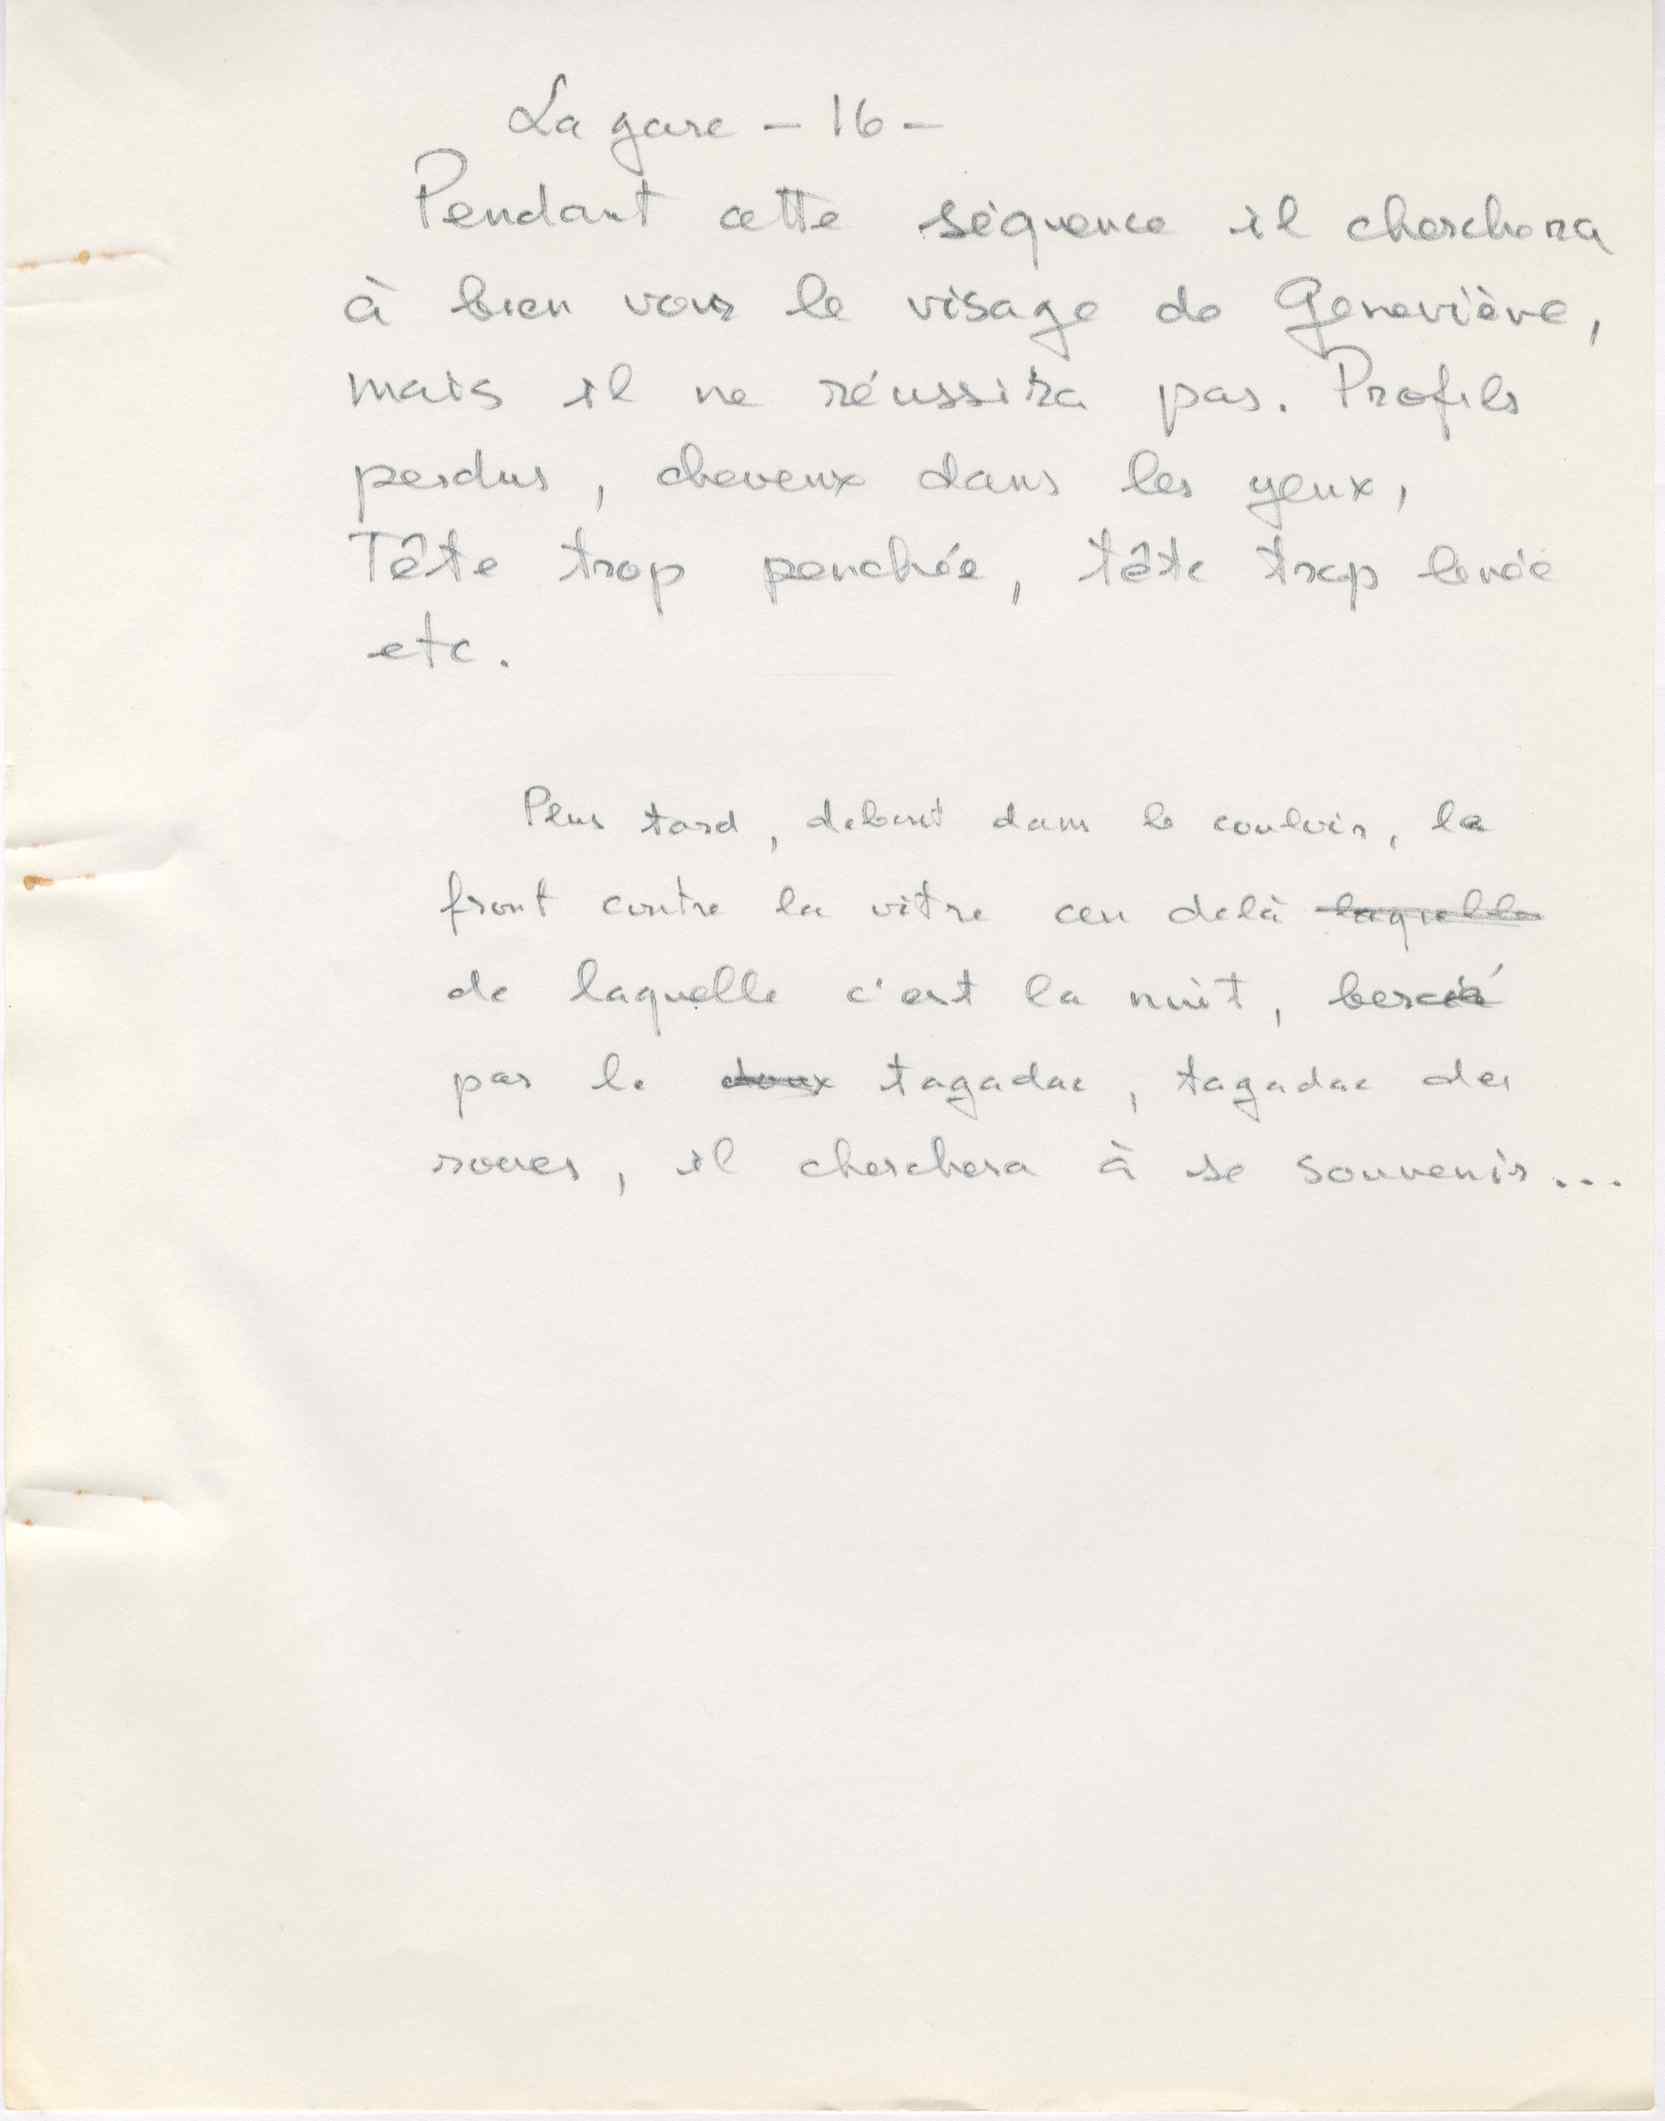 La gare - 16 -
Pendant cette séquence il cherchera
à bien voir le visage de Geneviève,
mais il ne réussira pas. Profils
perdus, cheveux dans les yeux,
Tête trop penchée, tête trop levée
etc.
Plus tard, debout dans le couloir, le
front contre la vitre au delà laquelle
de laquelle c'est la nuit, bercé
par le doux tagadac, tagadac des
roues, il cherchera à se souvenir...